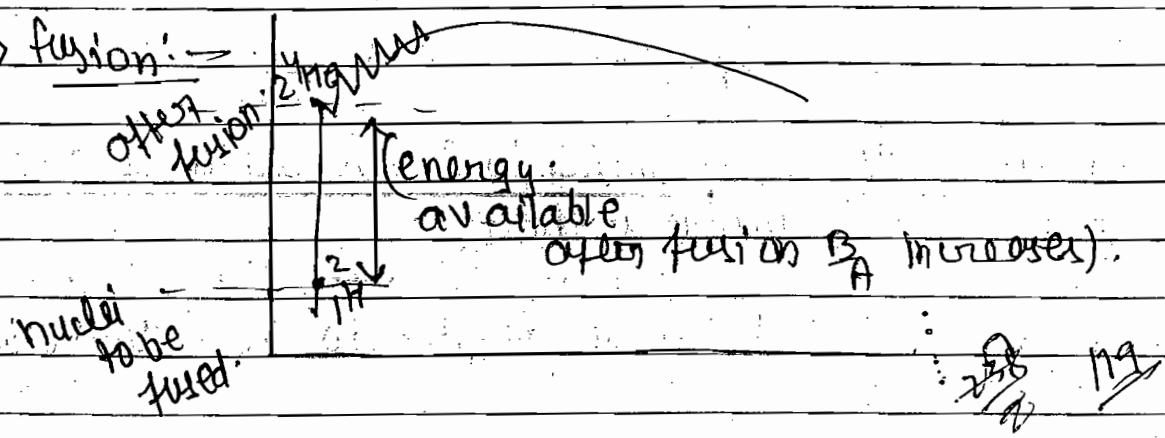 fusion :→
after
fusion.
⁴₂He
(energy
available
after fusion B/A increases).
²₁H
nuclei
to be
fused.
238/2 119